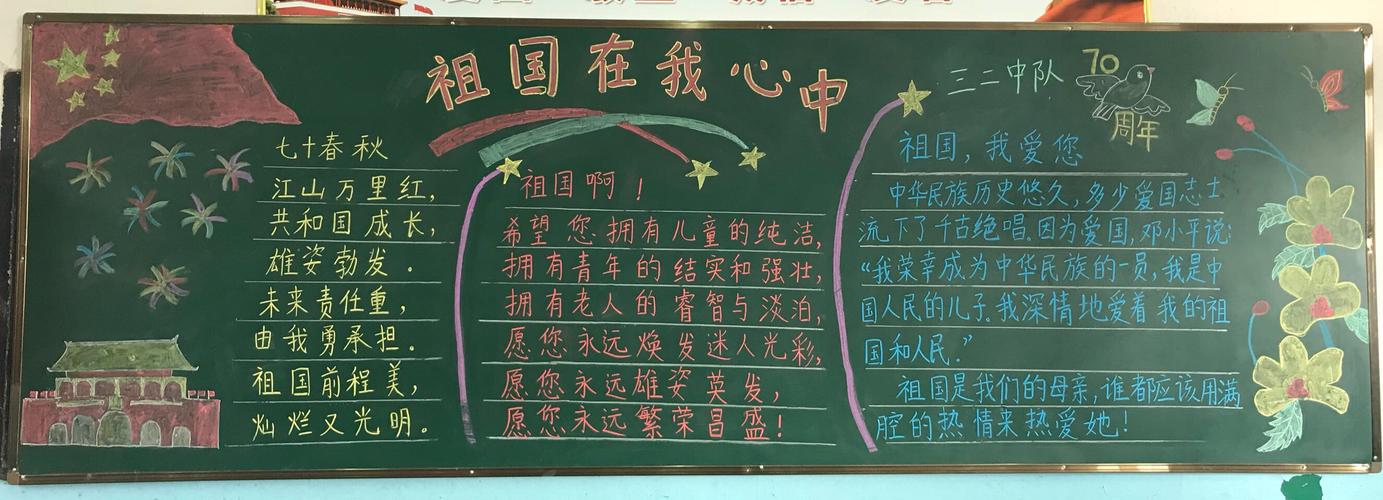 祖国在我心中
三二中队
70
周年
七十春秋
江山万里红，
共和国成长，
雄姿勃发．
未来责任重，
由我勇承担．
祖国前程美，
灿烂又光明。
祖国啊！
希望您拥有儿童的纯洁，
拥有青年的结实和强壮，
拥有老人的睿智与淡泊，
愿您永远焕发迷人光彩，
愿您永远雄姿英发，
愿您永远繁荣昌盛！
祖国，我爱您
中华民族历史悠久，多少爱国志士
流下了千古绝唱.因为爱国，邓小平说：
“我荣幸成为中华民族的一员，我是中
国人民的儿子.我深情地爱着我的祖
国和人民.”
祖国是我们的母亲，谁都应该用满
腔的热情来热爱她！